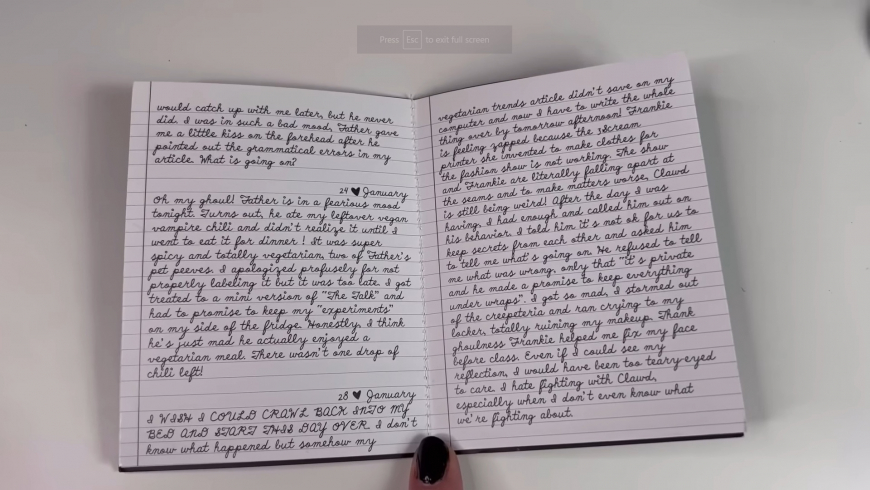 Press Esc to exit full screen
would catch up with me later, but he never
did. I was in such a bad mood, Father gave
me a little kiss on the forehead after he
pointed out the grammatical errors in my
article. What is going on?
24 ♥ January
Oh my ghoul! Father is in a fearious mood
tonight. Turns out, he ate my leftover vegan
vampire chili and didn't realize it until I
went to eat it for dinner ! It was super
spicy and totally vegetarian, two of Father's
pet peeves. I apologized profusely for not
properly labeling it but it was too late. I got
treated to a mini version of "The Talk" and
had to promise to keep my "experiments"
on my side of the fridge. Honestly, I think
he's just mad he actually enjoyed a
vegetarian meal. There wasn't one drop of
chili left!
28 ♥ January
I WISH I COULD CRAWL BACK INTO MY
BED AND START THIS DAY OVER. I don't
know what happened but somehow my
vegetarian trends article didn't save on my
computer and now I have to write the whole
thing over by tomorrow afternoon! Frankie
is feeling zapped because the 3Scream
printer she invented to make clothes for
the fashion show is not working. The show
and Frankie are literally falling apart at
the seams and to make matters worse, Clawd
is still being weird! After the day I was
having, I had enough and called him out on
his behavior. I told him it's not ok for us to
keep secrets from each other and asked him
to tell me what's going on. He refused to tell
me what was wrong, only that "it's private
and he made a promise to keep everything
under wraps". I got so mad, I stormed out
of the creepeteria and ran crying to my
locker, totally ruining my makeup. Thank
ghoulness Frankie helped me fix my face
before class. Even if I could see my
reflection, I would have been too teary-eyed
to care. I hate fighting with Clawd,
especially when I don't even know what
we're fighting about.